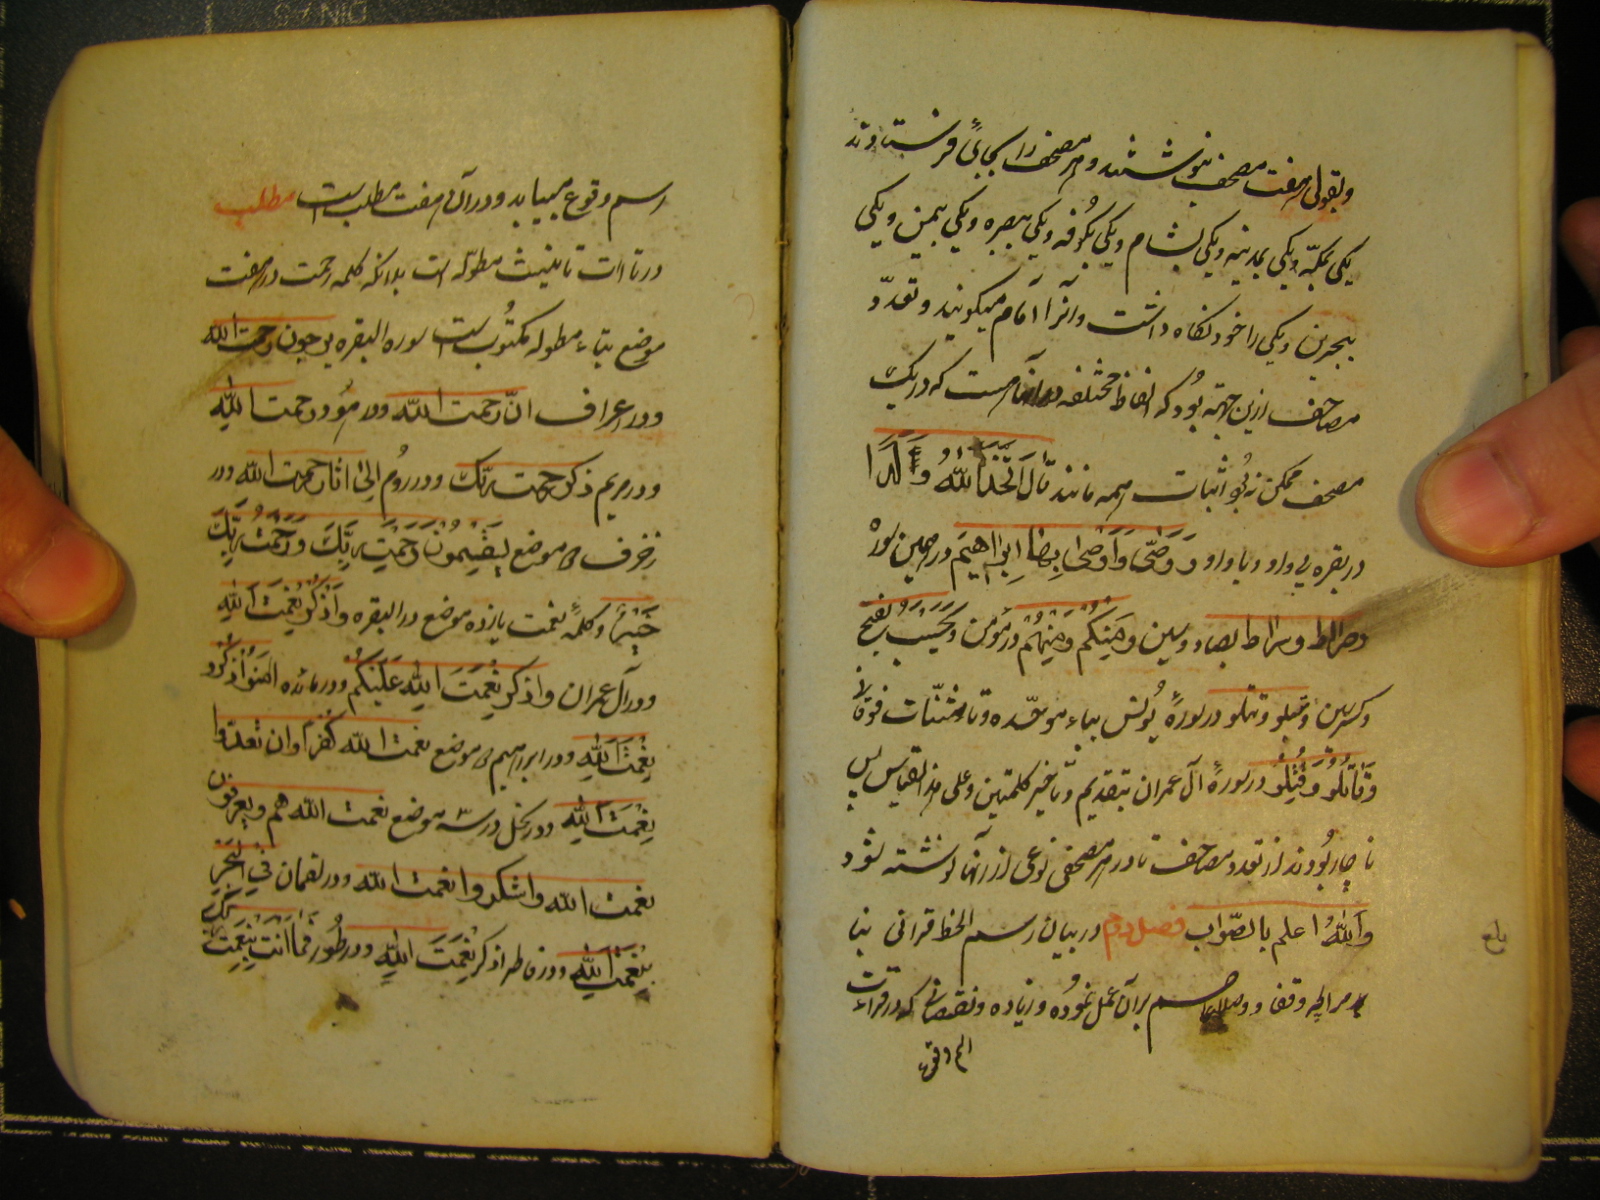 وبقولی هفت مصحف بنوشتند و هر مصحف را بجائی فرستادند
یکی بمکّه ویکی بمدینه ویکی بشام ویکی بکُوفه ویکی ببصره ویکی بیمن ویکی
ببحرین ویکی را خود نکاه داشت وانرا امام میکویند وتعدّد
مصاحف ازین جهته بُود که الفاظ مختلفه درانها هست که در یک
مصحف ممکن نه بُود اثبات همه مانند قَالَ اتَّخَذَ اللّٰهُ وَلَدًا
در بقره بی واو وبا واو و وَصّٰی وَاَوْصٰی بِهَا اِبرٰاهیمَ در همین سوره
وصراط وسراط بصاد وسین ومِنکم ومِنهُم در مؤمن ویَحسَبُ بفتح
وکسر سین وتبلو وتتلو در سورهٔ یُونس بباء موحّده وتاء مثنّات فوقانی
وَقَاتَلُو وَقُتِلُو در سورهٔ آل عمران بتقدیم وتأخیر کلمتین وعلی هذالقیاس پس
ناچار بُودند از تعدد مصاحف تا در هر مصحفی نوعی از آنها نوشته شود
وَاللّٰهُ اعلم بالصّواب فصل دوم در بیان رسم الخط قرانی بنا
بر مرالچه وقف ووصلا عاصم بران عمل نموُده وزیاده ونقصانی که در قرائت
الم وقوع
بلغ
رسم وقوع مییابد ودر آن هفت مطلب است مطلب
در تاات تانیث مطوّله است بدانکه کلمه رحمت در هفت
موضع بتاء مطوله مکتُوب ست سوره البقره یرجون رحمت الله
ودر اعراف انّ رحمت اللّه ودر هُود رحمت اللّٰه
ودر مریم ذکر رحمت ربّک ودر رُوم اِلیٰ اثار رحمت اللّه ودر
زخرف دو موضع یَقْسِمُونَ رَحْمَتَ رَبِّکَ وَرَحْمَتُ رَبِّکَ
خَیْرٌ وکلمهٔ نعمت یازده موضع در البقره وَاذْکُرُو نِعْمَتَ اللّٰه
ودر آل عمران واذکرو نِعْمَتَ اللّٰه عَلَیْکُم ودر مائده اٰمَنُو اذْکُرُو
نِعْمَتَ اللّٰهِ ودر ابراهیم دو موضع نعمت اللّه کُفْرًا وان تَعُدّوا
نِعْمَتَ اللّٰهِ ودر نحل در سه موضع نعمت اللّه هم ویعرفون
نعمت اللّه واشکروا نعمت اللّه ودر لقمان فِی الْبَحْرِ
بِنِعْمَتِ اللّٰهِ ودر فاطر اذکرو نِعْمَتَ اللّٰهِ ودر طُور فَمَا اَنْتَ بِنِعْمَتِ رَبِّکَ